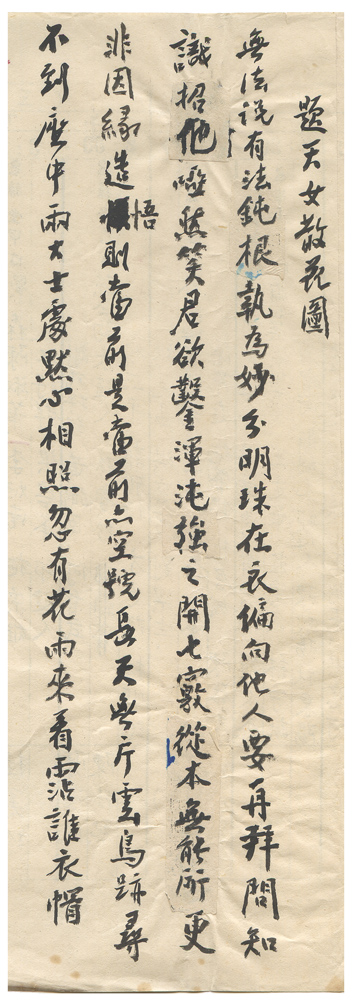 題天女散花圖
無法說有法鈍根執為妙分明珠在衣偏向他人要再拜問知
識招他啞然笑君欲鑿渾沌強之開七竅從本無能所更
非因緣造悟則當前是當前亦空號長天無片雲鳥跡尋
不到座中兩大士處默心相照忽有花雨來看霑誰衣帽